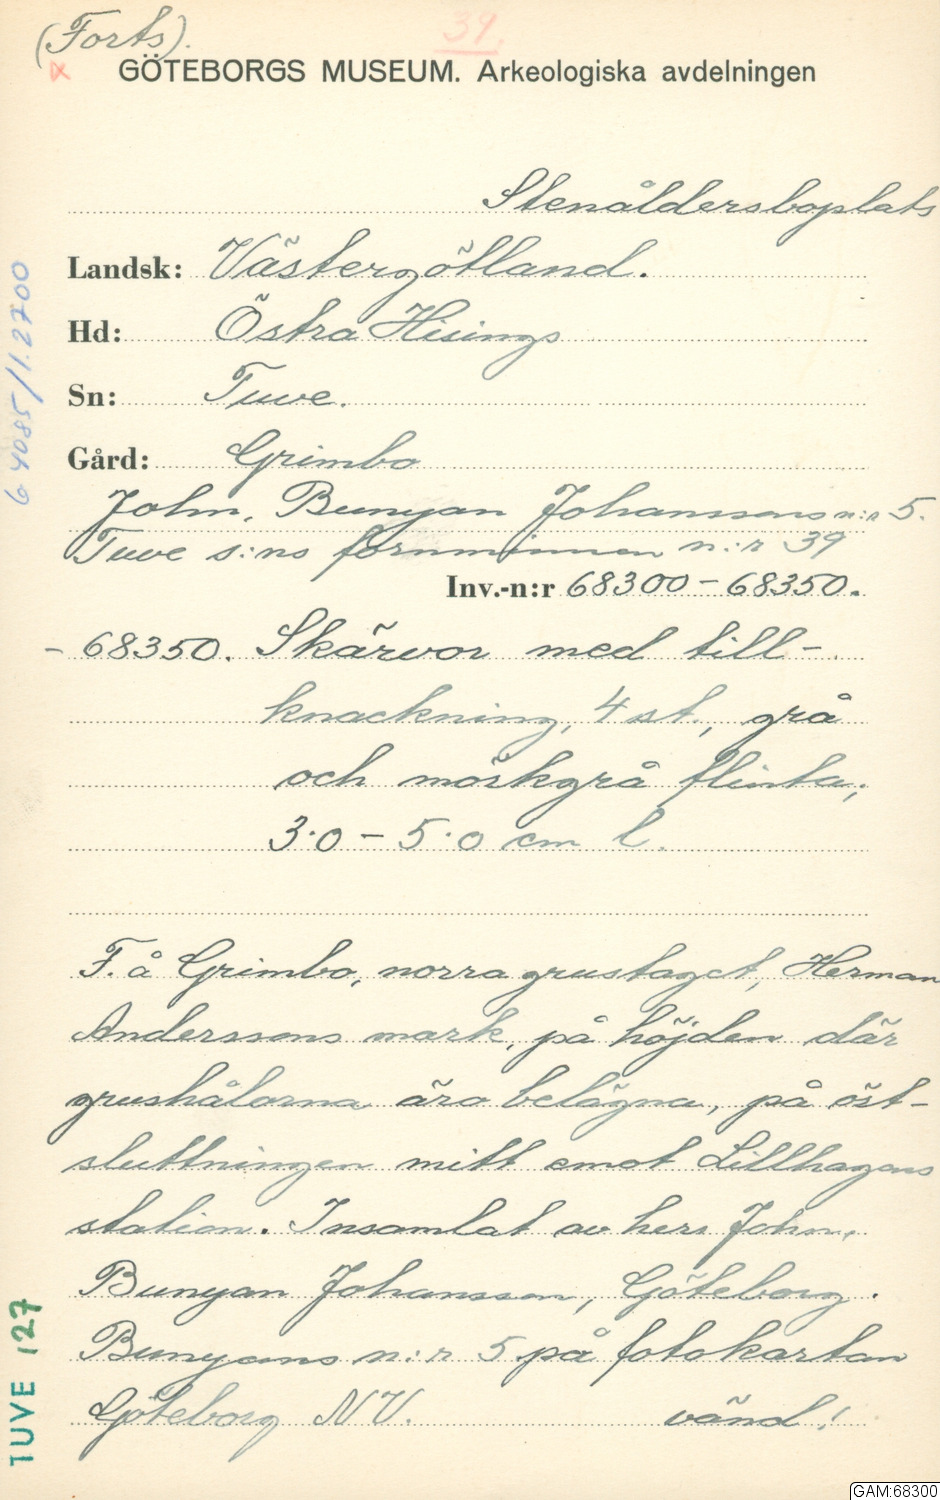 (Forts).
39
x
GÖTEBORGS MUSEUM. Arkeologiska avdelningen
Stenåldersboplats
Landsk: Västergötland.
Hd: Östra Hisings
Sn: Tuve.
Gård: Grimbo
John. Bunyan Johanssons n:r 5.
Tuve s:ns fornminnen n:r 39
Inv.-n:r 68300-68350.
- 68350. Skärvor med till-
knackning, 4 st., grå
och mörkgrå flinta,
3.0 - 5.0 cm l.
F. å Grimbo, norra grustaget, Herman
Anderssons mark, på höjden där
grushålorna äro belägna, på öst-
sluttningen mitt emot Lillhagens
station. Insamlat av herr John.
Bunyan Johansson, Göteborg.
Bunyans n:r 5 på fotokartan
Göteborg NV. vänd!
64085/1.2700
TUVE 127
GAM:68300